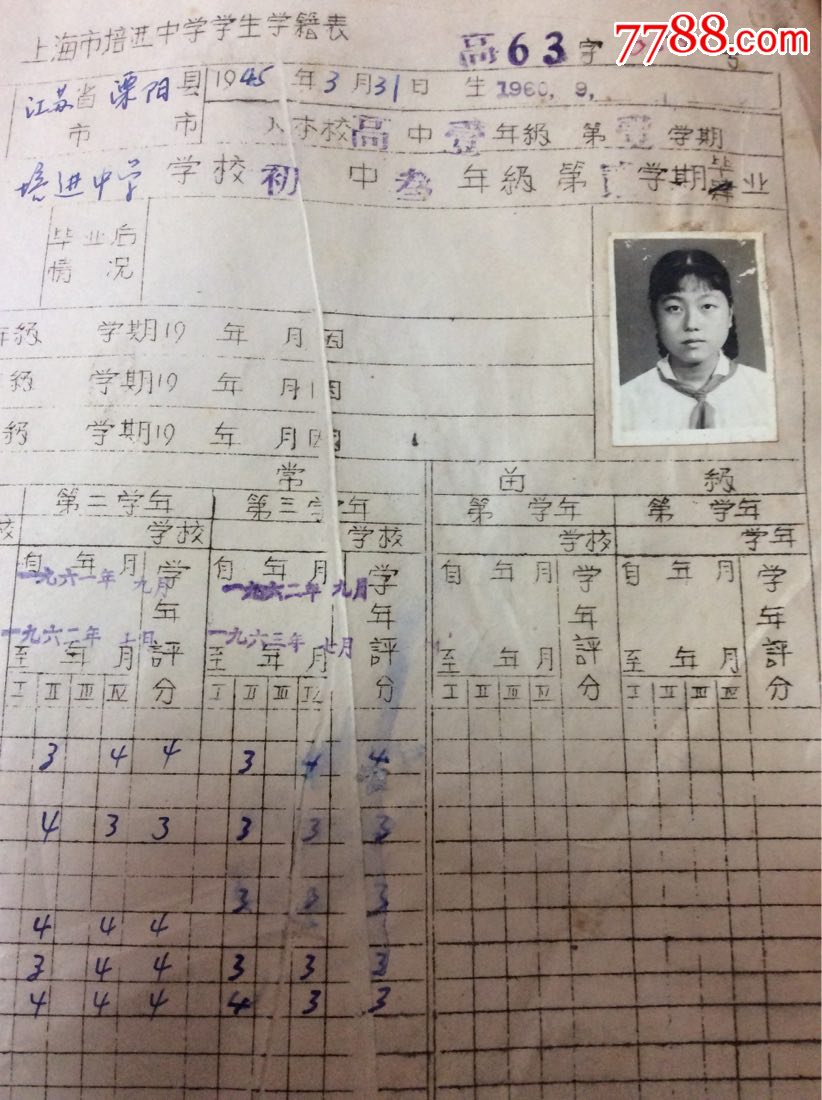 7788.com
上海市培进中学学生学籍表
高63字
江苏省溧阳县 1945年3月31日 生 1960.9.
市 市 入本校高中壹年級 第壹学期
培进中学学校初中叁年級第 学期毕业
毕业后
情况
年級 学期19 年 月因
級 学期19 年 月因
級 学期19 年 月因
常 年級
第二学年 第三学年 第 学年 第 学年
校 学校 学校 学校 学年
自 年 月 学 自 年 月 学 自 年 月 学 自 年 月 学
一九六一年 九月 一九六二年 九月
年 年 年 年
一九六二年 七月 評 一九六三年 七月 評 評 評
至 年 月 至 年 月 至 年 月 至 年 月
I II III IV 分 I II III IV 分 I II III IV 分 I II III IV 分
3 4 4 3 4 4
4 3 3 3 3 3
3 3 3
4 4 4
3 4 4 3 3 3
4 4 4 4 3 3